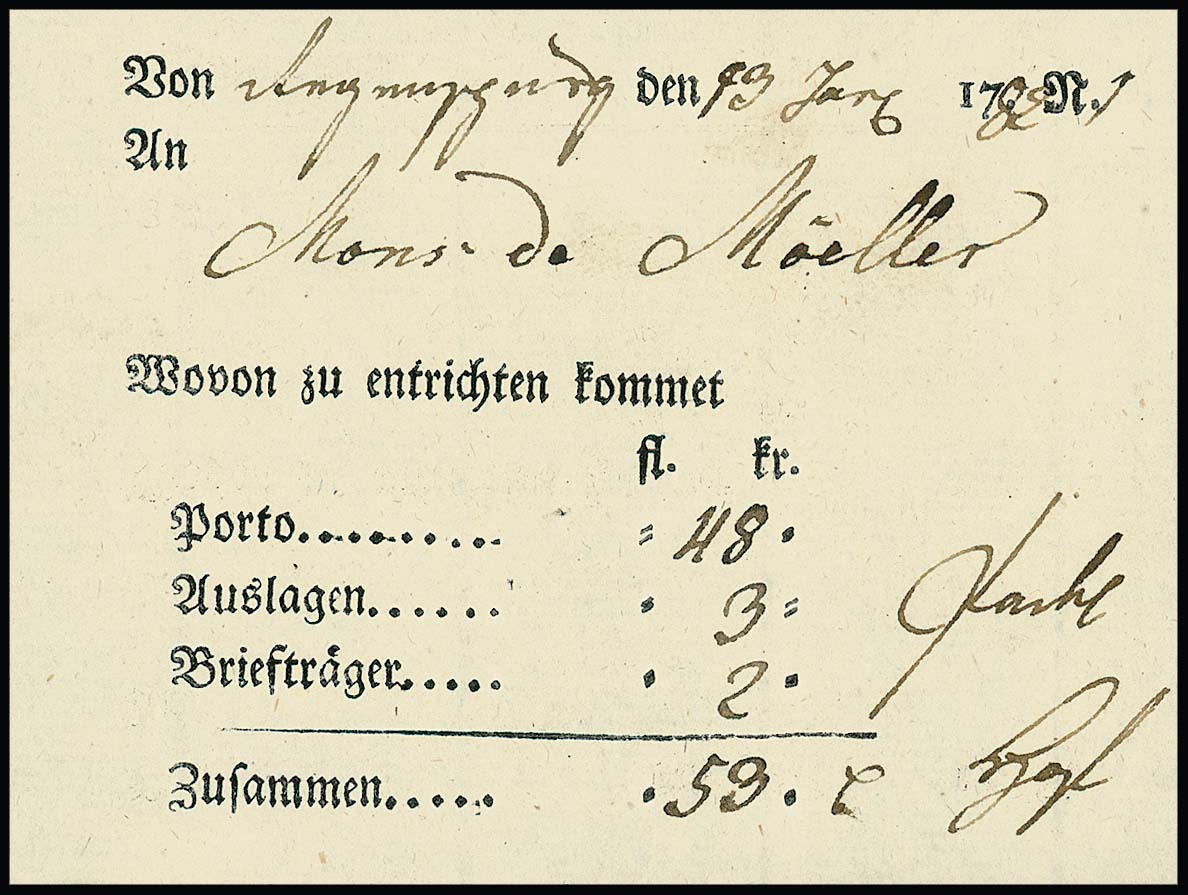 Von Regenspurg den 13 Jan 1788 N. 1
An
Mons de Möeller
Wovon zu entrichten kommet
fl. kr.
Porto.......... = 48 .
Auslagen...... . 3 =
Briefträger..... . 2 .
Zusammen...... . 53 .